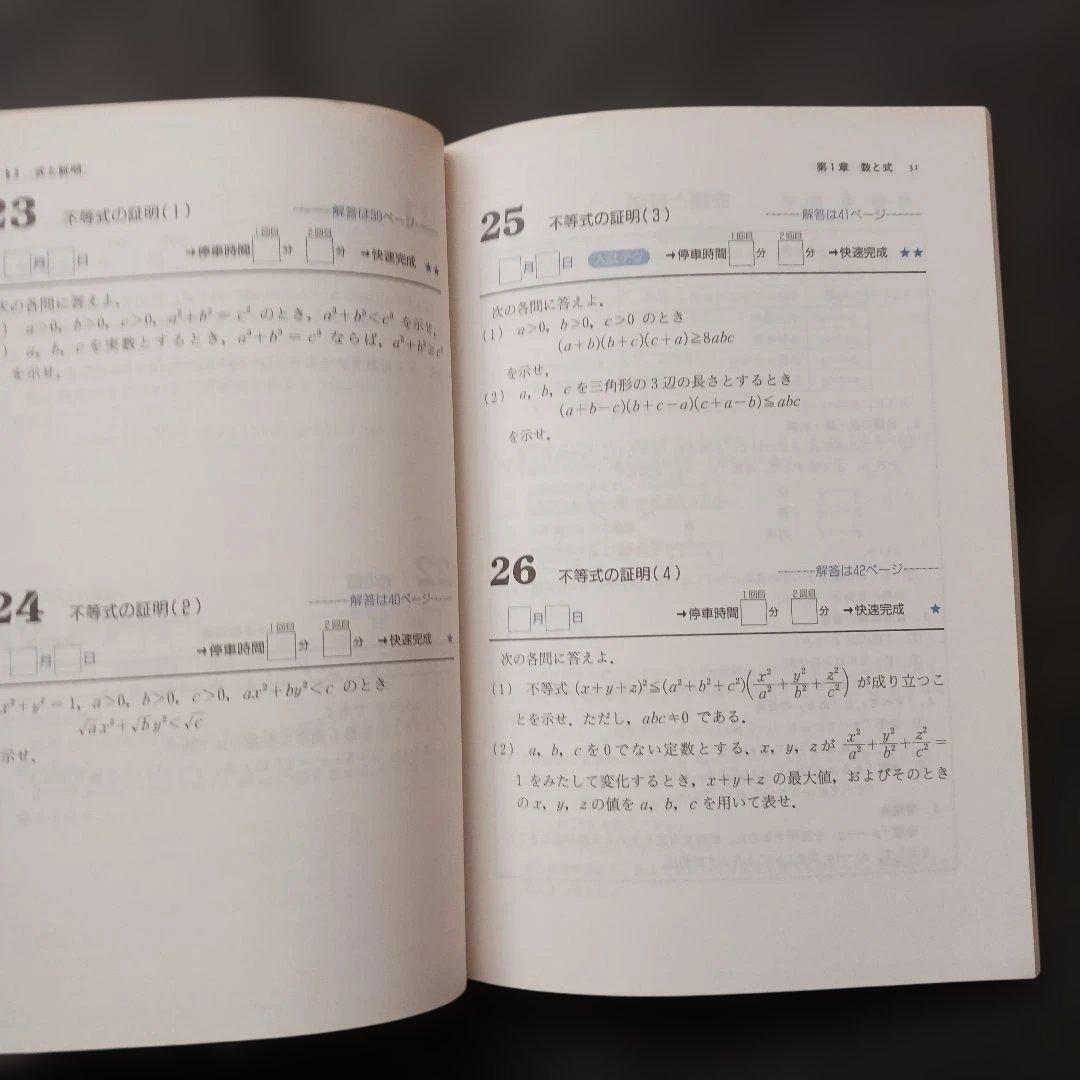 式と証明
23 不等式の証明(1) 解答は39ページ
月 日 →停車時間 1回目 分 2回目 分 →快速完成 ★★
次の各問に答えよ.
) a>0, b>0, c>0, a²+b²=c² のとき, a³+b³<c³ を示せ.
) a, b, c を実数とするとき, a³+b³=c³ ならば, a²+b²≧c²
を示せ.
24 不等式の証明(2) 解答は40ページ
月 日 →停車時間 1回目 分 2回目 分 →快速完成 ★
x²+y²=1, a>0, b>0, c>0, ax²+by²<c のとき
√a x²+√b y²<√c
示せ.
第1章 数と式 31
25 不等式の証明(3) 解答は41ページ
月 日 入試テク →停車時間 1回目 分 2回目 分 →快速完成 ★★
次の各問に答えよ.
(1) a>0, b>0, c>0 のとき
(a+b)(b+c)(c+a)≧8abc
を示せ.
(2) a, b, c を三角形の3辺の長さとするとき
(a+b-c)(b+c-a)(c+a-b)≦abc
を示せ.
26 不等式の証明(4) 解答は42ページ
月 日 →停車時間 1回目 分 2回目 分 →快速完成 ★
次の各問に答えよ.
(1) 不等式 (x+y+z)²≦(a²+b²+c²)(x²/a²+y²/b²+z²/c²) が成り立つこ
とを示せ. ただし, abc≠0 である.
(2) a, b, c を0でない定数とする. x, y, z が x²/a²+y²/b²+z²/c²=
1 をみたして変化するとき, x+y+z の最大値, およびそのとき
の x, y, z の値を a, b, c を用いて表せ.